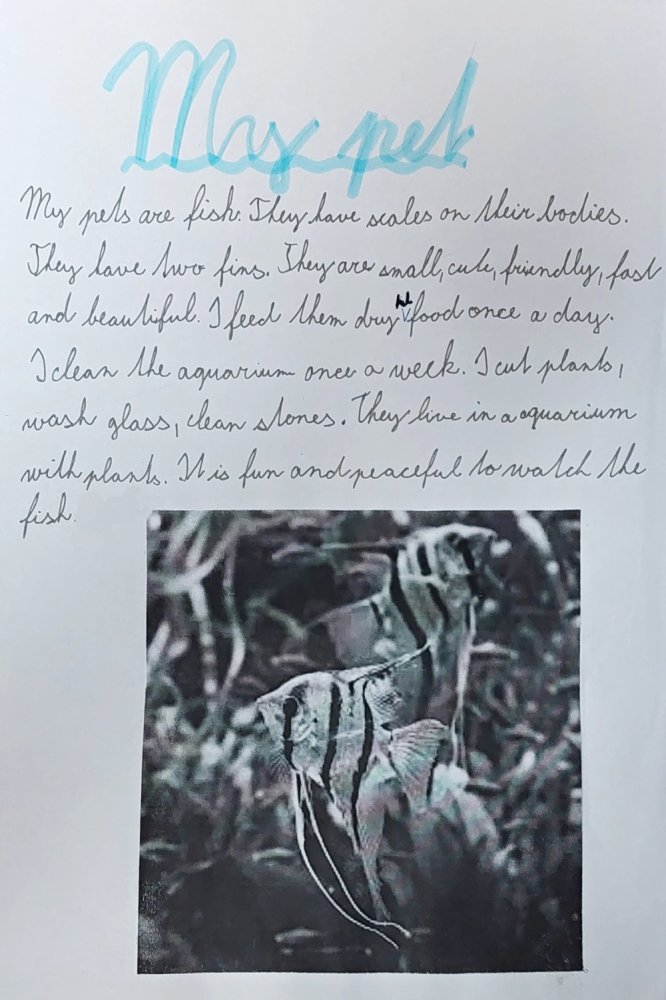 My pet
My pets are fish. They have scales on their bodies.
They have two fins. They are small, cute, friendly, fast
and beautiful. I feed them dry food once a day.
I clean the aquarium once a week. I cut plants,
wash glass, clean stones. They live in a aquarium
with plants. It is fun and peaceful to watch the
fish.